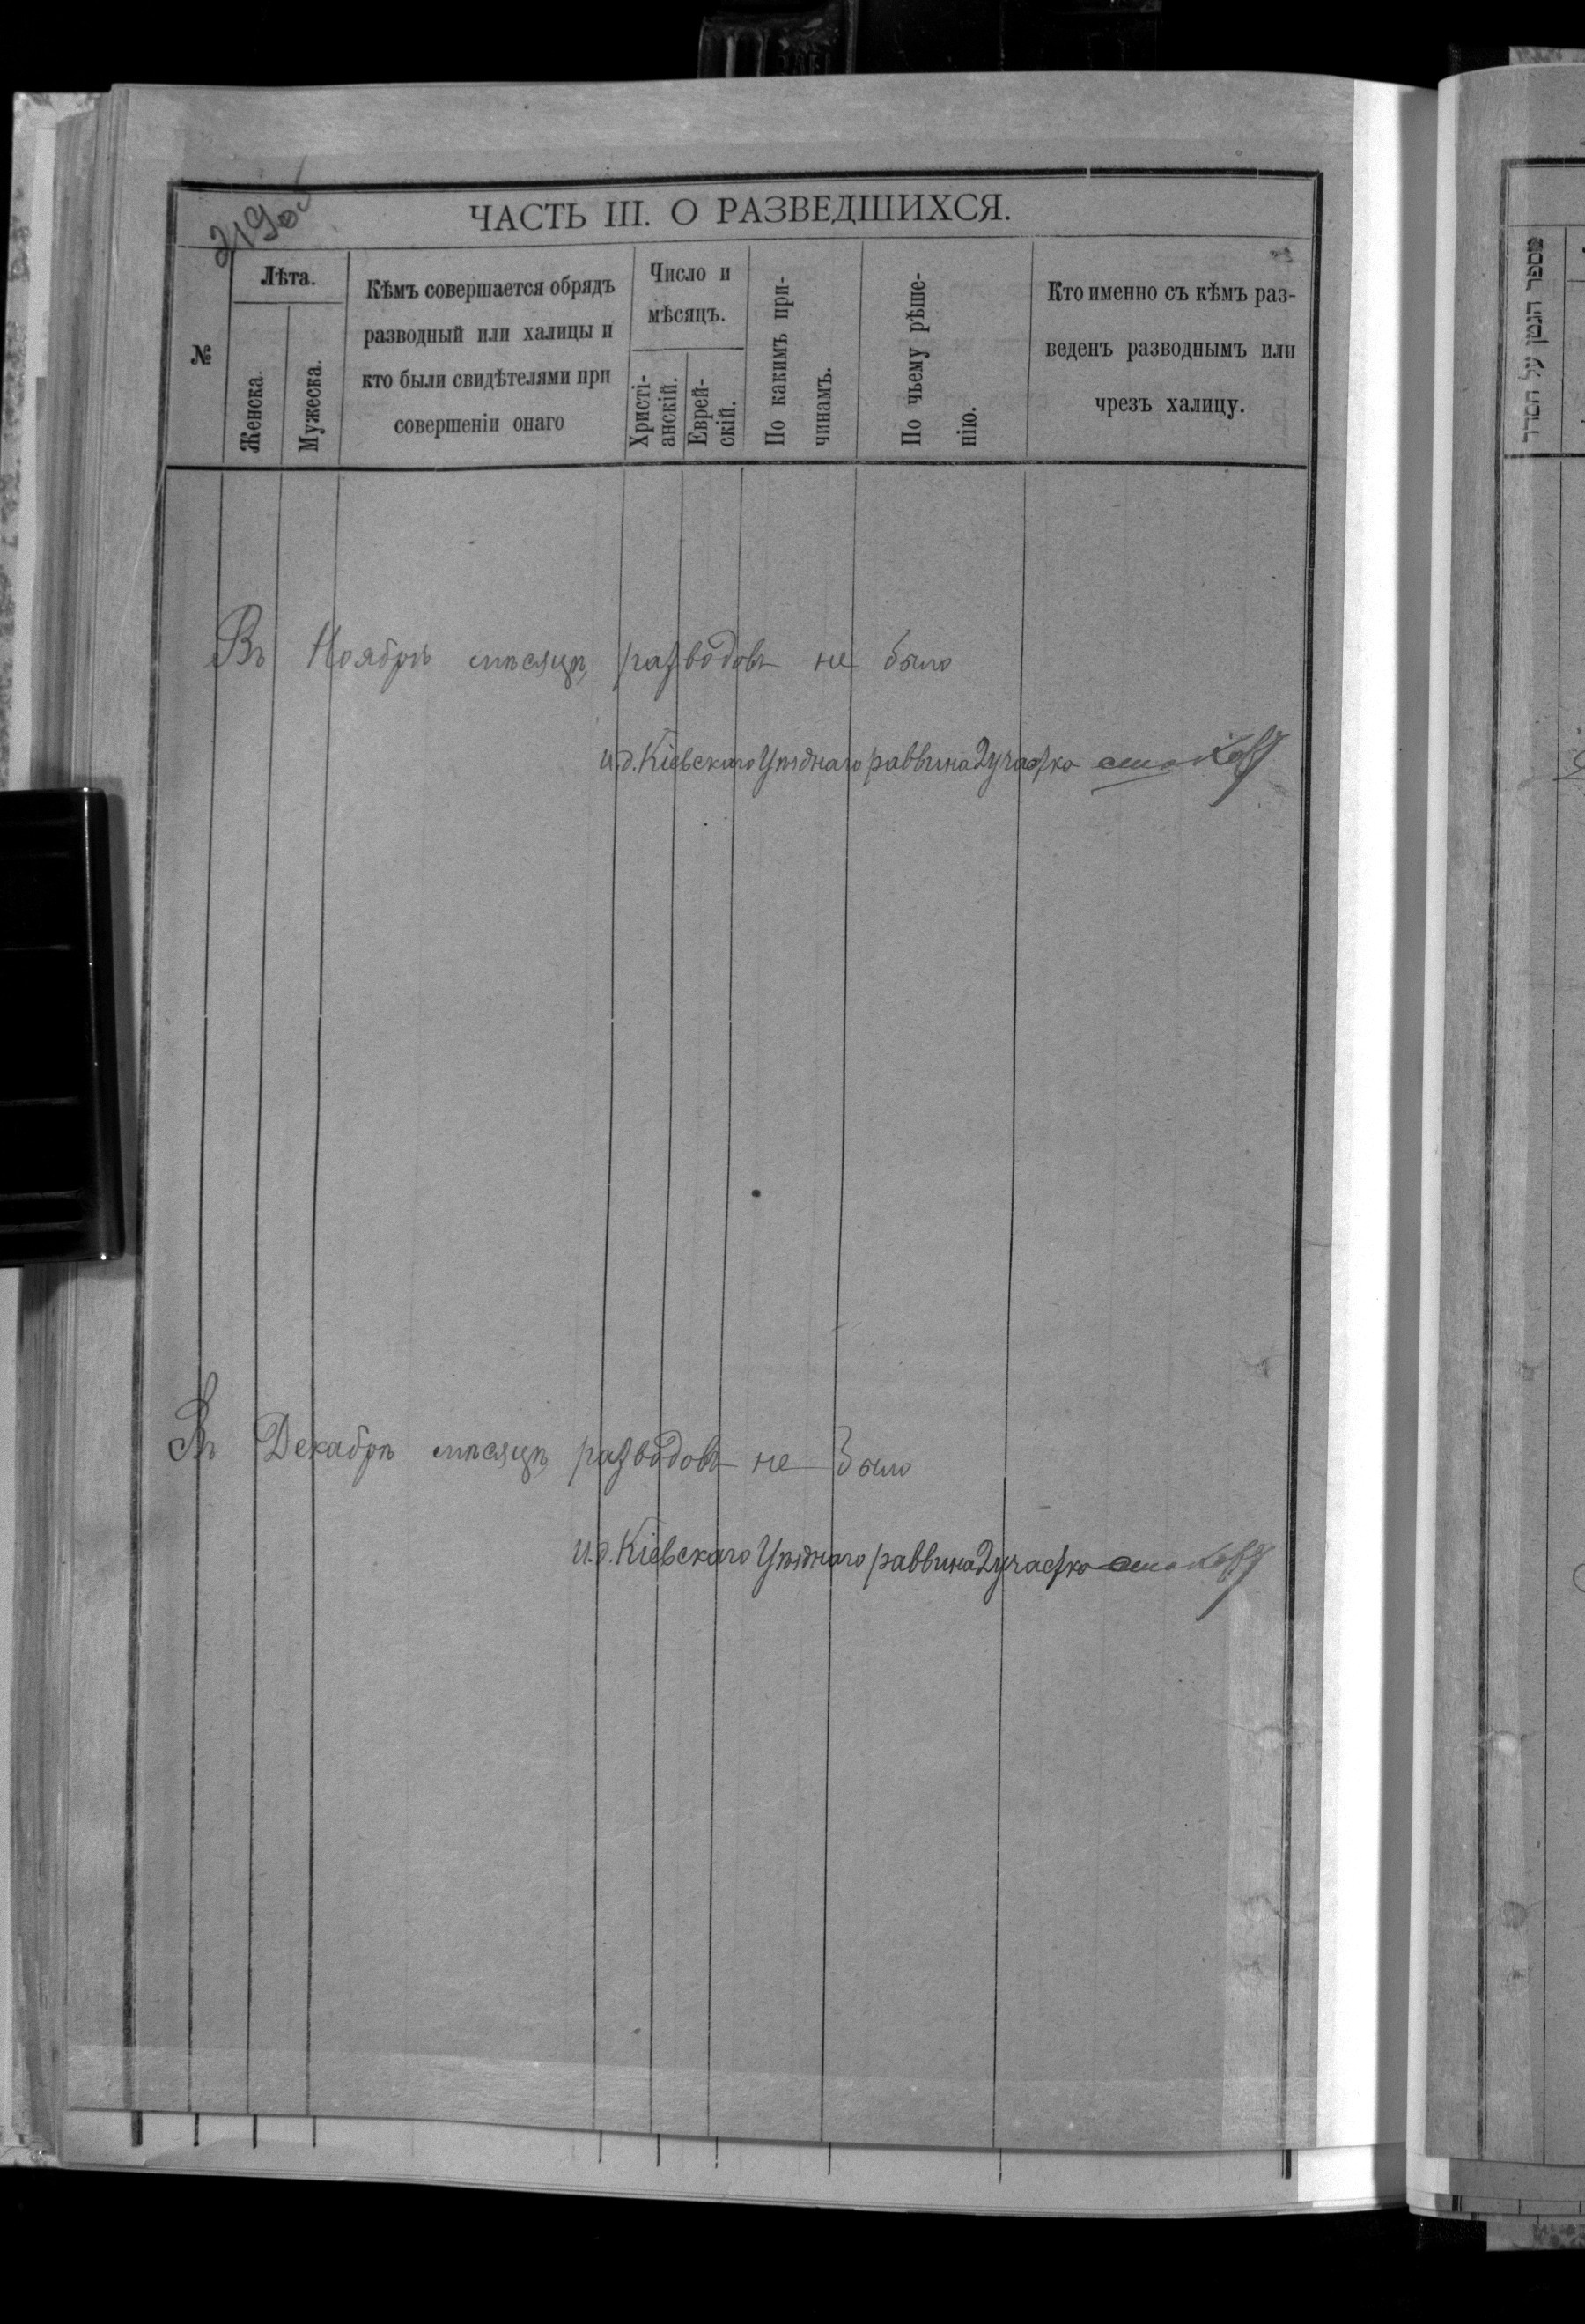 219об
ЧАСТЬ III. О РАЗВЕДШИХСЯ.
№
Лѣта.
Женска.
Мужеска.
Кѣмъ совершается обрядъ
разводный или халицы и
кто были свидѣтелями при
совершеніи онаго
Число и
мѣсяцъ.
Христі-
анскій.
Еврей-
скій.
По какимъ при-
чинамъ.
По чьему рѣше-
нію.
Кто именно съ кѣмъ раз-
веденъ разводнымъ или
чрезъ халицу.
Въ Ноябрѣ мѣсяцѣ разводовъ не было
И.д. Кіевскаго Уѣзднаго раввина 2 участка
Въ Декабрѣ мѣсяцѣ разводовъ не было
И.д. Кіевскаго Уѣзднаго раввина 2 участка